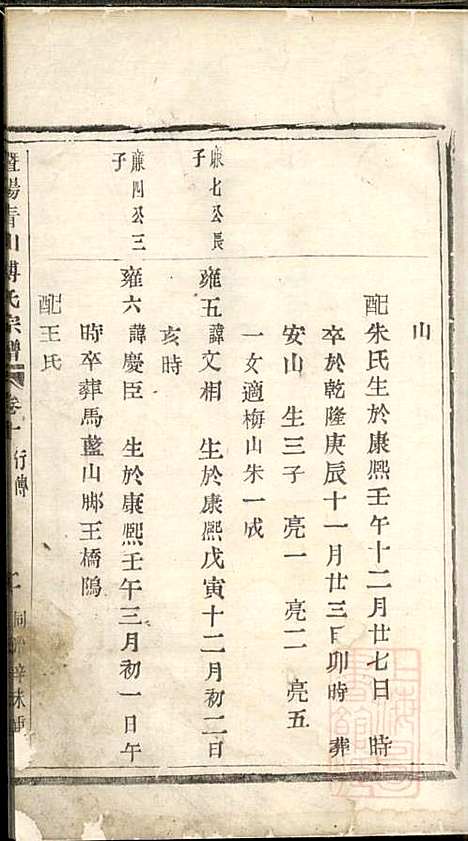 山
配朱氏生於康熙壬午十二月廿七日　時
卒於乾隆庚辰十一月廿三日卯時葬
安山　生三子　亮一　亮二　亮五
一女適梅山朱一成
廉七公長
子
雍五諱文相　生於康熙戊寅十二月初二日
亥時
廉四公三
子
雍六諱慶臣　生於康熙壬午三月初一日午
時卒葬馬藍山腳王橋隖
配王氏
暨陽青山傅氏宗譜　卷十　行傳